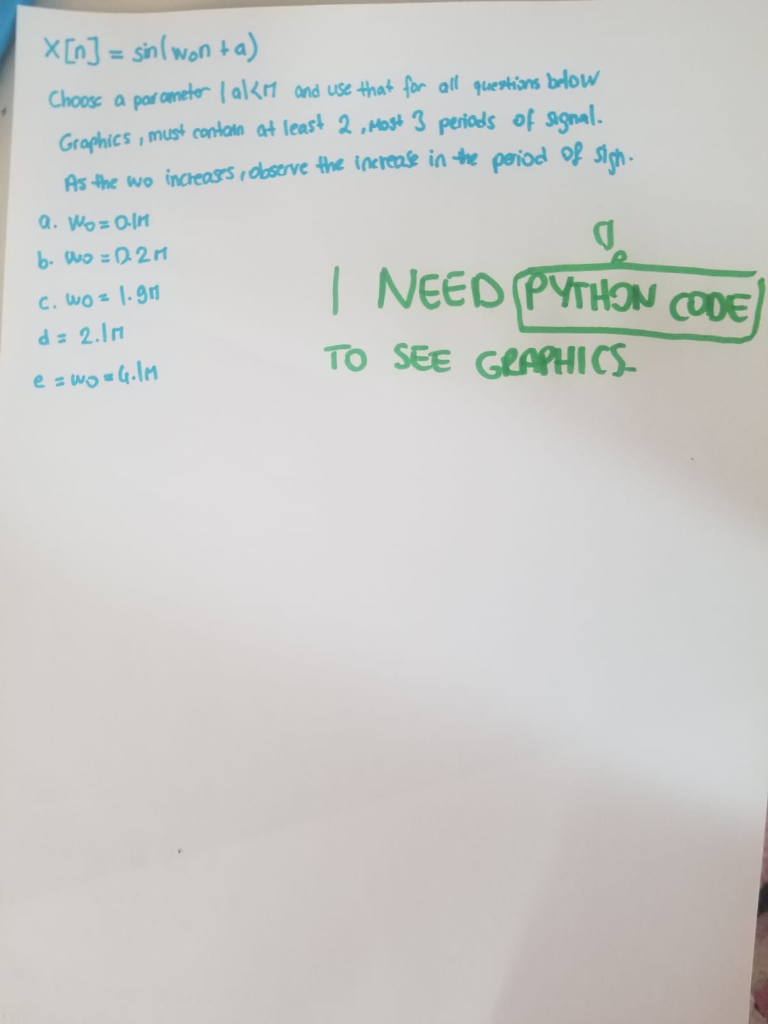 X[n] = sin(won + a)
Choose a parameter |a|<π and use that for all questions below
Graphics, must contain at least 2, most 3 periods of signal.
As the wo increases, observe the increase in the period of sign.
a. wo = 0.1π
b. wo = 0.2π
c. wo = 1.9π
d = 2.1π
e = wo = 4.1π
I NEED PYTHON CODE
TO SEE GRAPHICS